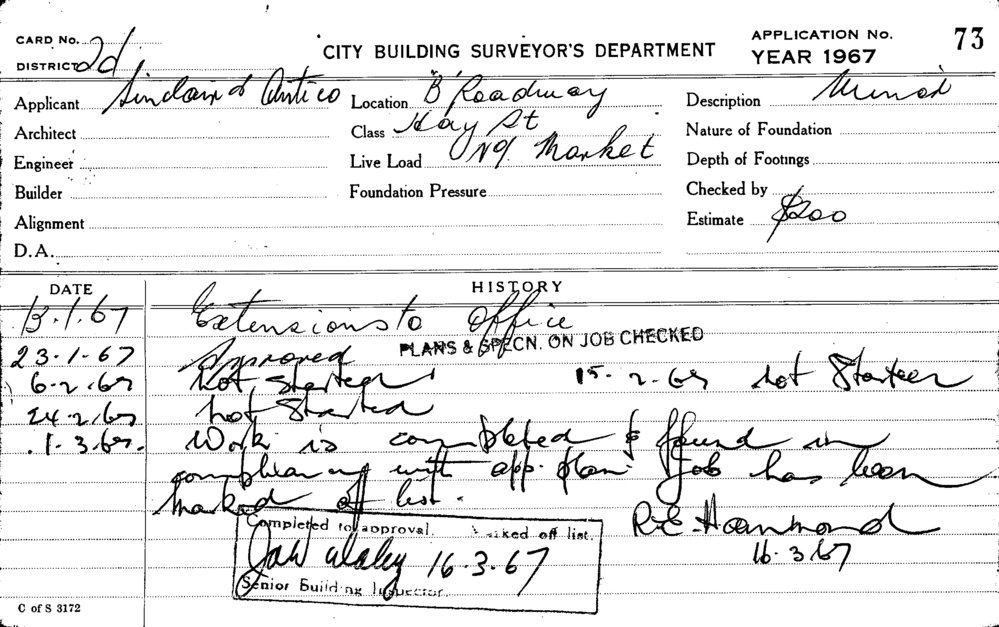 CARD No. 2d
DISTRICT
CITY BUILDING SURVEYOR'S DEPARTMENT
APPLICATION No. 73
YEAR 1967
Applicant Sinclair & Antico
Location B'Roadway
Description Minor
Architect
Class Hay St
Nature of Foundation
Engineer
Live Load No 9 Market
Depth of Footings
Builder
Foundation Pressure
Checked by
Alignment
Estimate $200
D.A.
DATE
HISTORY
13.1.67 Extensions to Office
23.1.67 Approved PLANS & SPECN. ON JOB CHECKED
6.2.67 Not Started 15.2.67 Not Started
24.2.67 Not Started
1.3.67. Work is completed & found in
compliance with app. plan. Job has been
marked off list.
R.E. Hammond
16.3.67
Completed to approval. Marked off list.
16.3.67
Senior Building Inspector.
C of S 3172